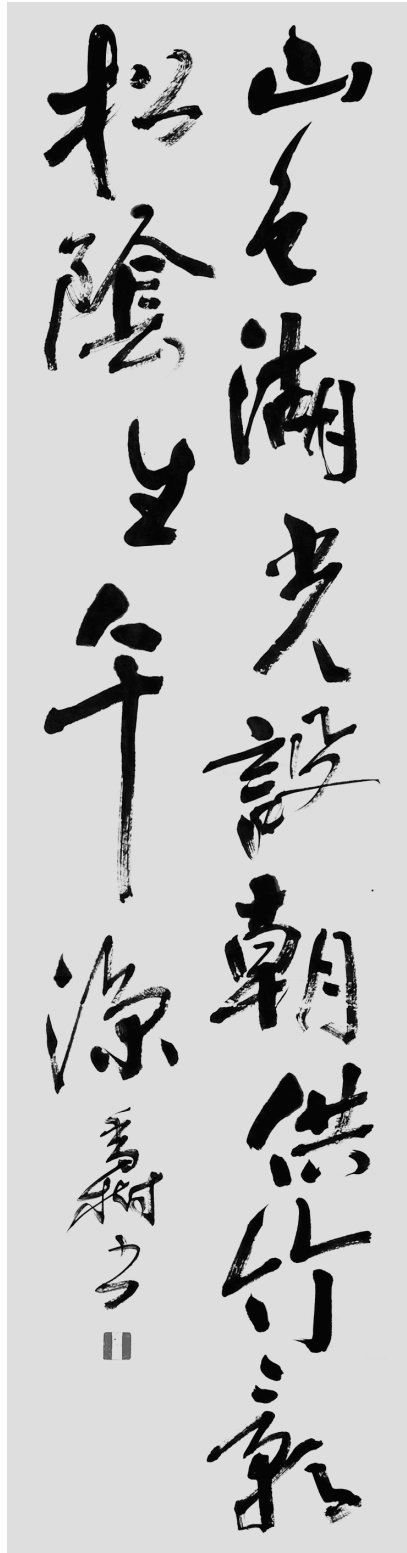 山色湖光設朝供竹影
松陰生午涼
樹書